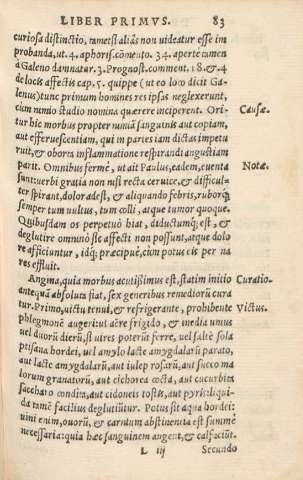 LIBER PRIMVS. 83
curiosa distinctio, tametsi aliâs non uideatur esse im
probanda, ut. 4. aphoris. cōmento. 34. aperte tamen
à Galeno damnatur. 3. Prognost. comment. 18. & 4
de locis affectis cap. 5. quippe (ut eo loco dicit Ga-
lenus) tunc primum homines res ipsas neglexerunt,
cùm nimio studio nomina quærere inciperent. Ori- Causæ.
tur hic morbus propter nimiā sanguinis aut copiam,
aut efferuescentiam, qui in partes iam dictas impetu
ruit, & oborta inflammatione respirandi angustiam
parit. Omnibus fermè, ut ait Paulus, eadem, euenta Notæ.
sunt: uerbi gratia non nisi recta ceruice, & difficul-
ter spirant, dolor adest, & aliquando febris, ruborq́;
semper tum uultus, tum colli, atque tumor quoque.
Quibusdam os perpetuò hiat, diductumq́; est, &
deglutire omnino sic affecti non possunt, atque dolo
re afficiuntur, idq́; præcipuè, cùm potus eis per na
res effluit.
Angina, quia morbus acutissimus est, statim initio Curatio.
antequā absoluta fiat, sex generibus remediorū cura
tur. Primo, uictu tenui, & refrigerante, prohibente Victus.
phlegmonē augeri: ut aëre frigido, & inedia unius
uel duorū dierū, si uires poterūt ferre, uel saltē sola
ptisana hordei, uel amylo lacte amygdalarū parato,
aut lacte amygdalarū, aut iulep rosarū, aut succo ma
lorum granatorū, aut cichorea cocta, aut cucurbita
saccharo condita, aut cidoneis tostis, aut pyris: liqui-
da tamē facilius deglutiūtur. Potus sit aqua hordei:
uini enim, ouorū, & carnium abstinentia est summè
necessaria: quia hæc sanguinem augent, & calfaciūt.
L iij Secundo